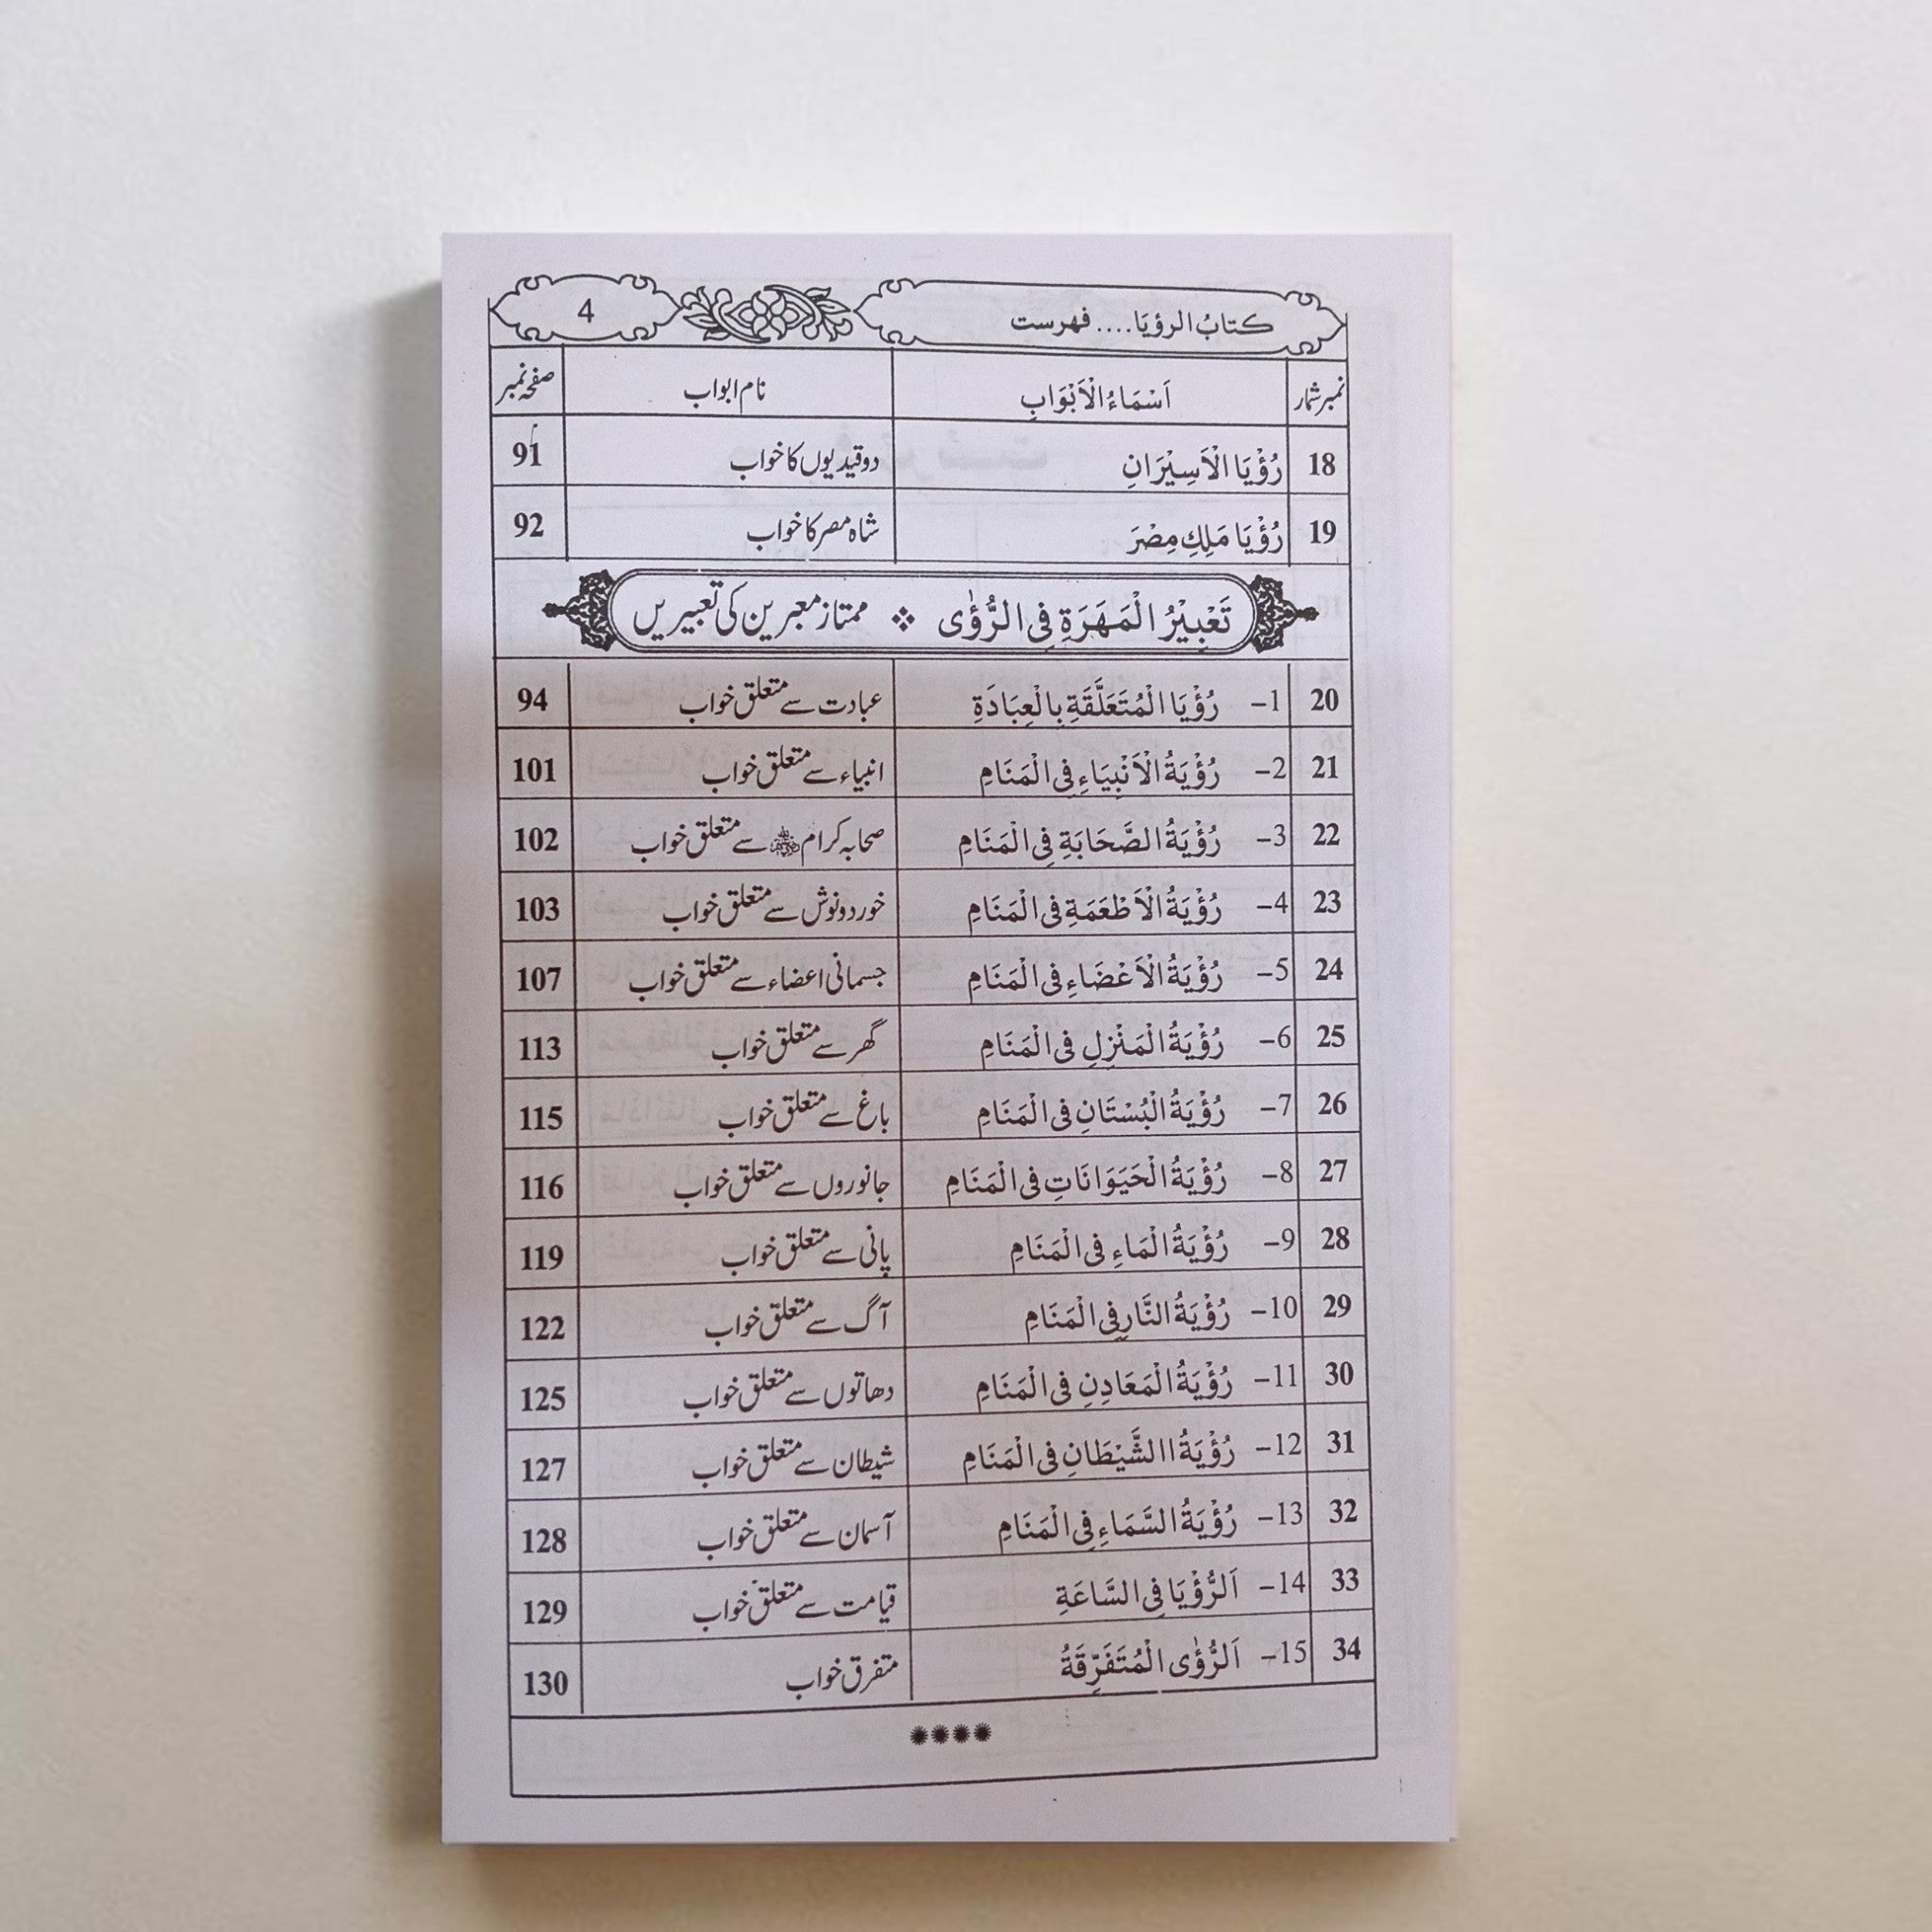 كتابُ الرؤيَا.... فهرست 4
نمبر شمار اَسْمَاءُ الْاَبْوَابِ نام ابواب صفحہ نمبر
18 رُؤْيَا الْاَسِيْرَانِ دو قیدیوں کا خواب 91
19 رُؤْيَا مَلِكِ مِصْرَ شاہ مصر کا خواب 92
تَعْبِيْرُ الْمَهَرَةِ فِى الرُّؤٰى ❖ ممتاز معبرین کی تعبیریں
20 1- رُؤْيَا الْمُتَعَلَّقَةِ بِالْعِبَادَةِ عبادت سے متعلق خواب 94
21 2- رُؤْيَةُ الْاَنْبِيَاءِ فِى الْمَنَامِ انبیاء سے متعلق خواب 101
22 3- رُؤْيَةُ الصَّحَابَةِ فِى الْمَنَامِ صحابہ کرام رضی اللہ عنہم سے متعلق خواب 102
23 4- رُؤْيَةُ الْاَطْعَمَةِ فِى الْمَنَامِ خورد و نوش سے متعلق خواب 103
24 5- رُؤْيَةُ الْاَعْضَاءِ فِى الْمَنَامِ جسمانی اعضاء سے متعلق خواب 107
25 6- رُؤْيَةُ الْمَنْزِلِ فِى الْمَنَامِ گھر سے متعلق خواب 113
26 7- رُؤْيَةُ الْبُسْتَانِ فِى الْمَنَامِ باغ سے متعلق خواب 115
27 8- رُؤْيَةُ الْحَيَوَانَاتِ فِى الْمَنَامِ جانوروں سے متعلق خواب 116
28 9- رُؤْيَةُ الْمَاءِ فِى الْمَنَامِ پانی سے متعلق خواب 119
29 10- رُؤْيَةُ النَّارِ فِى الْمَنَامِ آگ سے متعلق خواب 122
30 11- رُؤْيَةُ الْمَعَادِنِ فِى الْمَنَامِ دھاتوں سے متعلق خواب 125
31 12- رُؤْيَةُ االشَّيْطَانِ فِى الْمَنَامِ شیطان سے متعلق خواب 127
32 13- رُؤْيَةُ السَّمَاءِ فِى الْمَنَامِ آسمان سے متعلق خواب 128
33 14- اَلرُّؤْيَا فِى السَّاعَةِ قیامت سے متعلق خواب 129
34 15- اَلرُّؤٰى الْمُتَفَرِّقَةُ متفرق خواب 130